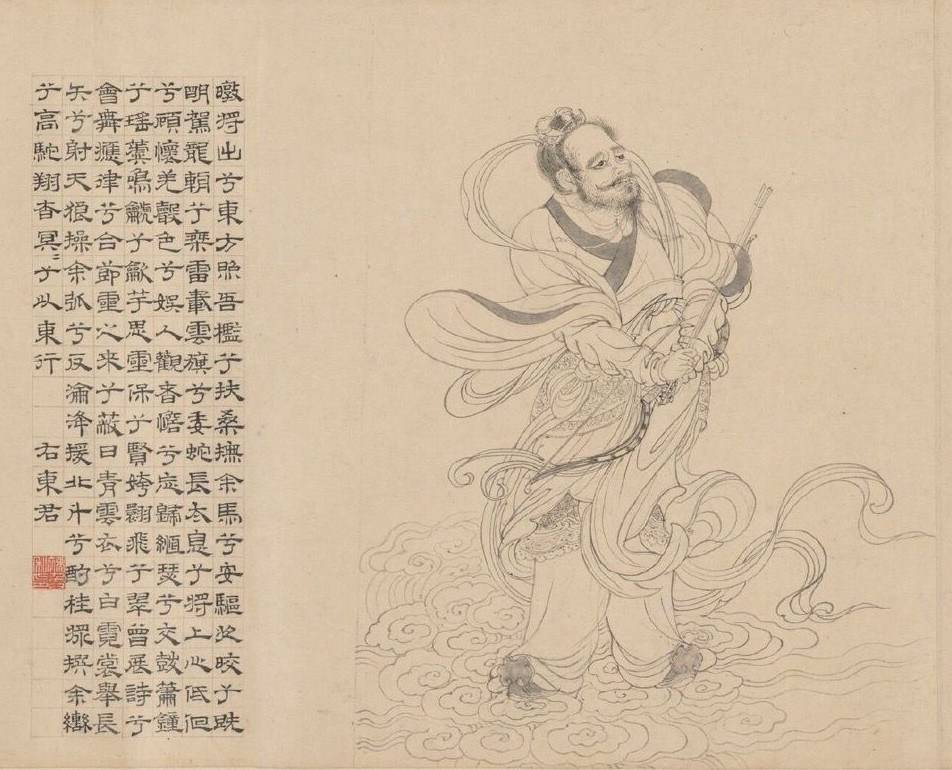 暾將出兮東方照吾檻兮扶桑撫余馬兮安驅夜皎兮既
明駕龍輈兮乘雷載雲旗兮委蛇長太息兮將上心低佪
兮顧懷羌聲色兮娛人觀者憺兮忘歸緪瑟兮交鼓簫鐘
兮瑤簴鳴䶵兮龡竽思靈保兮賢姱翾飛兮翠曾展詩兮
會舞應律兮合節靈之來兮蔽日青雲衣兮白霓裳舉長
矢兮射天狼操余弧兮反淪降援北斗兮酌桂漿撰余轡
兮高駝翔杳冥〻兮以東行 右東君